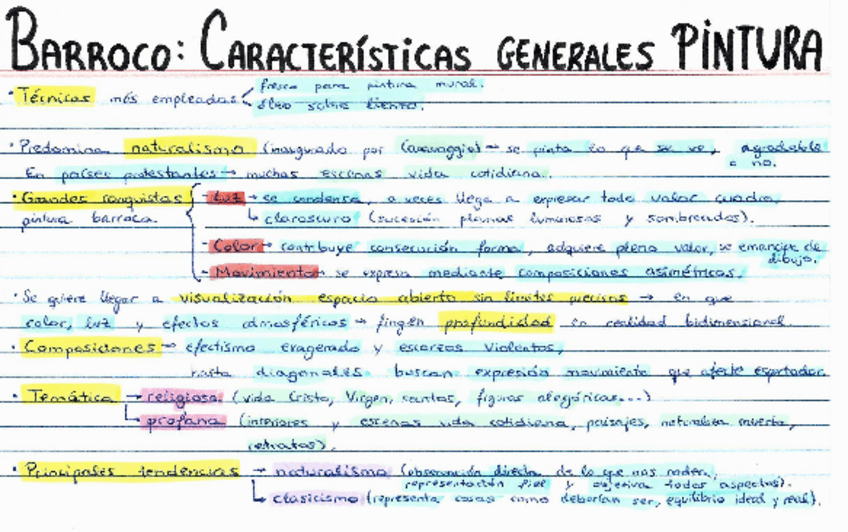 BARROCO: CARACTERÍSTICAS GENERALES PINTURA
· Técnicas más empleadas fresco para pintura mural.
óleo sobre lienzo.
· Predomina naturalismo (inaugurado por Caravaggio) → se pinta lo que se ve, agradable
o no.
En países protestantes → muchas escenas vida cotidiana.
· Grandes conquistas - Luz → se condensa, a veces llega a expresar todo valor cuadro,
pintura barroca. claroscuro (sucesión planos luminosos y sombreados).
- Color → contribuye consecución forma, adquiere pleno valor, se emancipa de
dibujo.
- Movimiento → se expresa mediante composiciones asimétricas.
· Se quiere llegar a visualización espacio abierto sin límites precisos → en que
color, luz y efectos atmosféricos → fingen profundidad en realidad bidimensional.
· Composiciones → efectismo exagerado y escorzos violentos,
hasta diagonales. buscan expresión movimiento que afecte espectador.
· Temática → religiosa (vida Cristo, Virgen, santos, figuras alegóricas...)
profana (interiores y escenas vida cotidiana, paisajes, naturaleza muerta,
retratos).
· Principales tendencias → naturalismo (observación directa de lo que nos rodea,
representación fiel y objetiva todos aspectos).
clasicismo (representa cosas como deberían ser, equilibrio ideal y real).